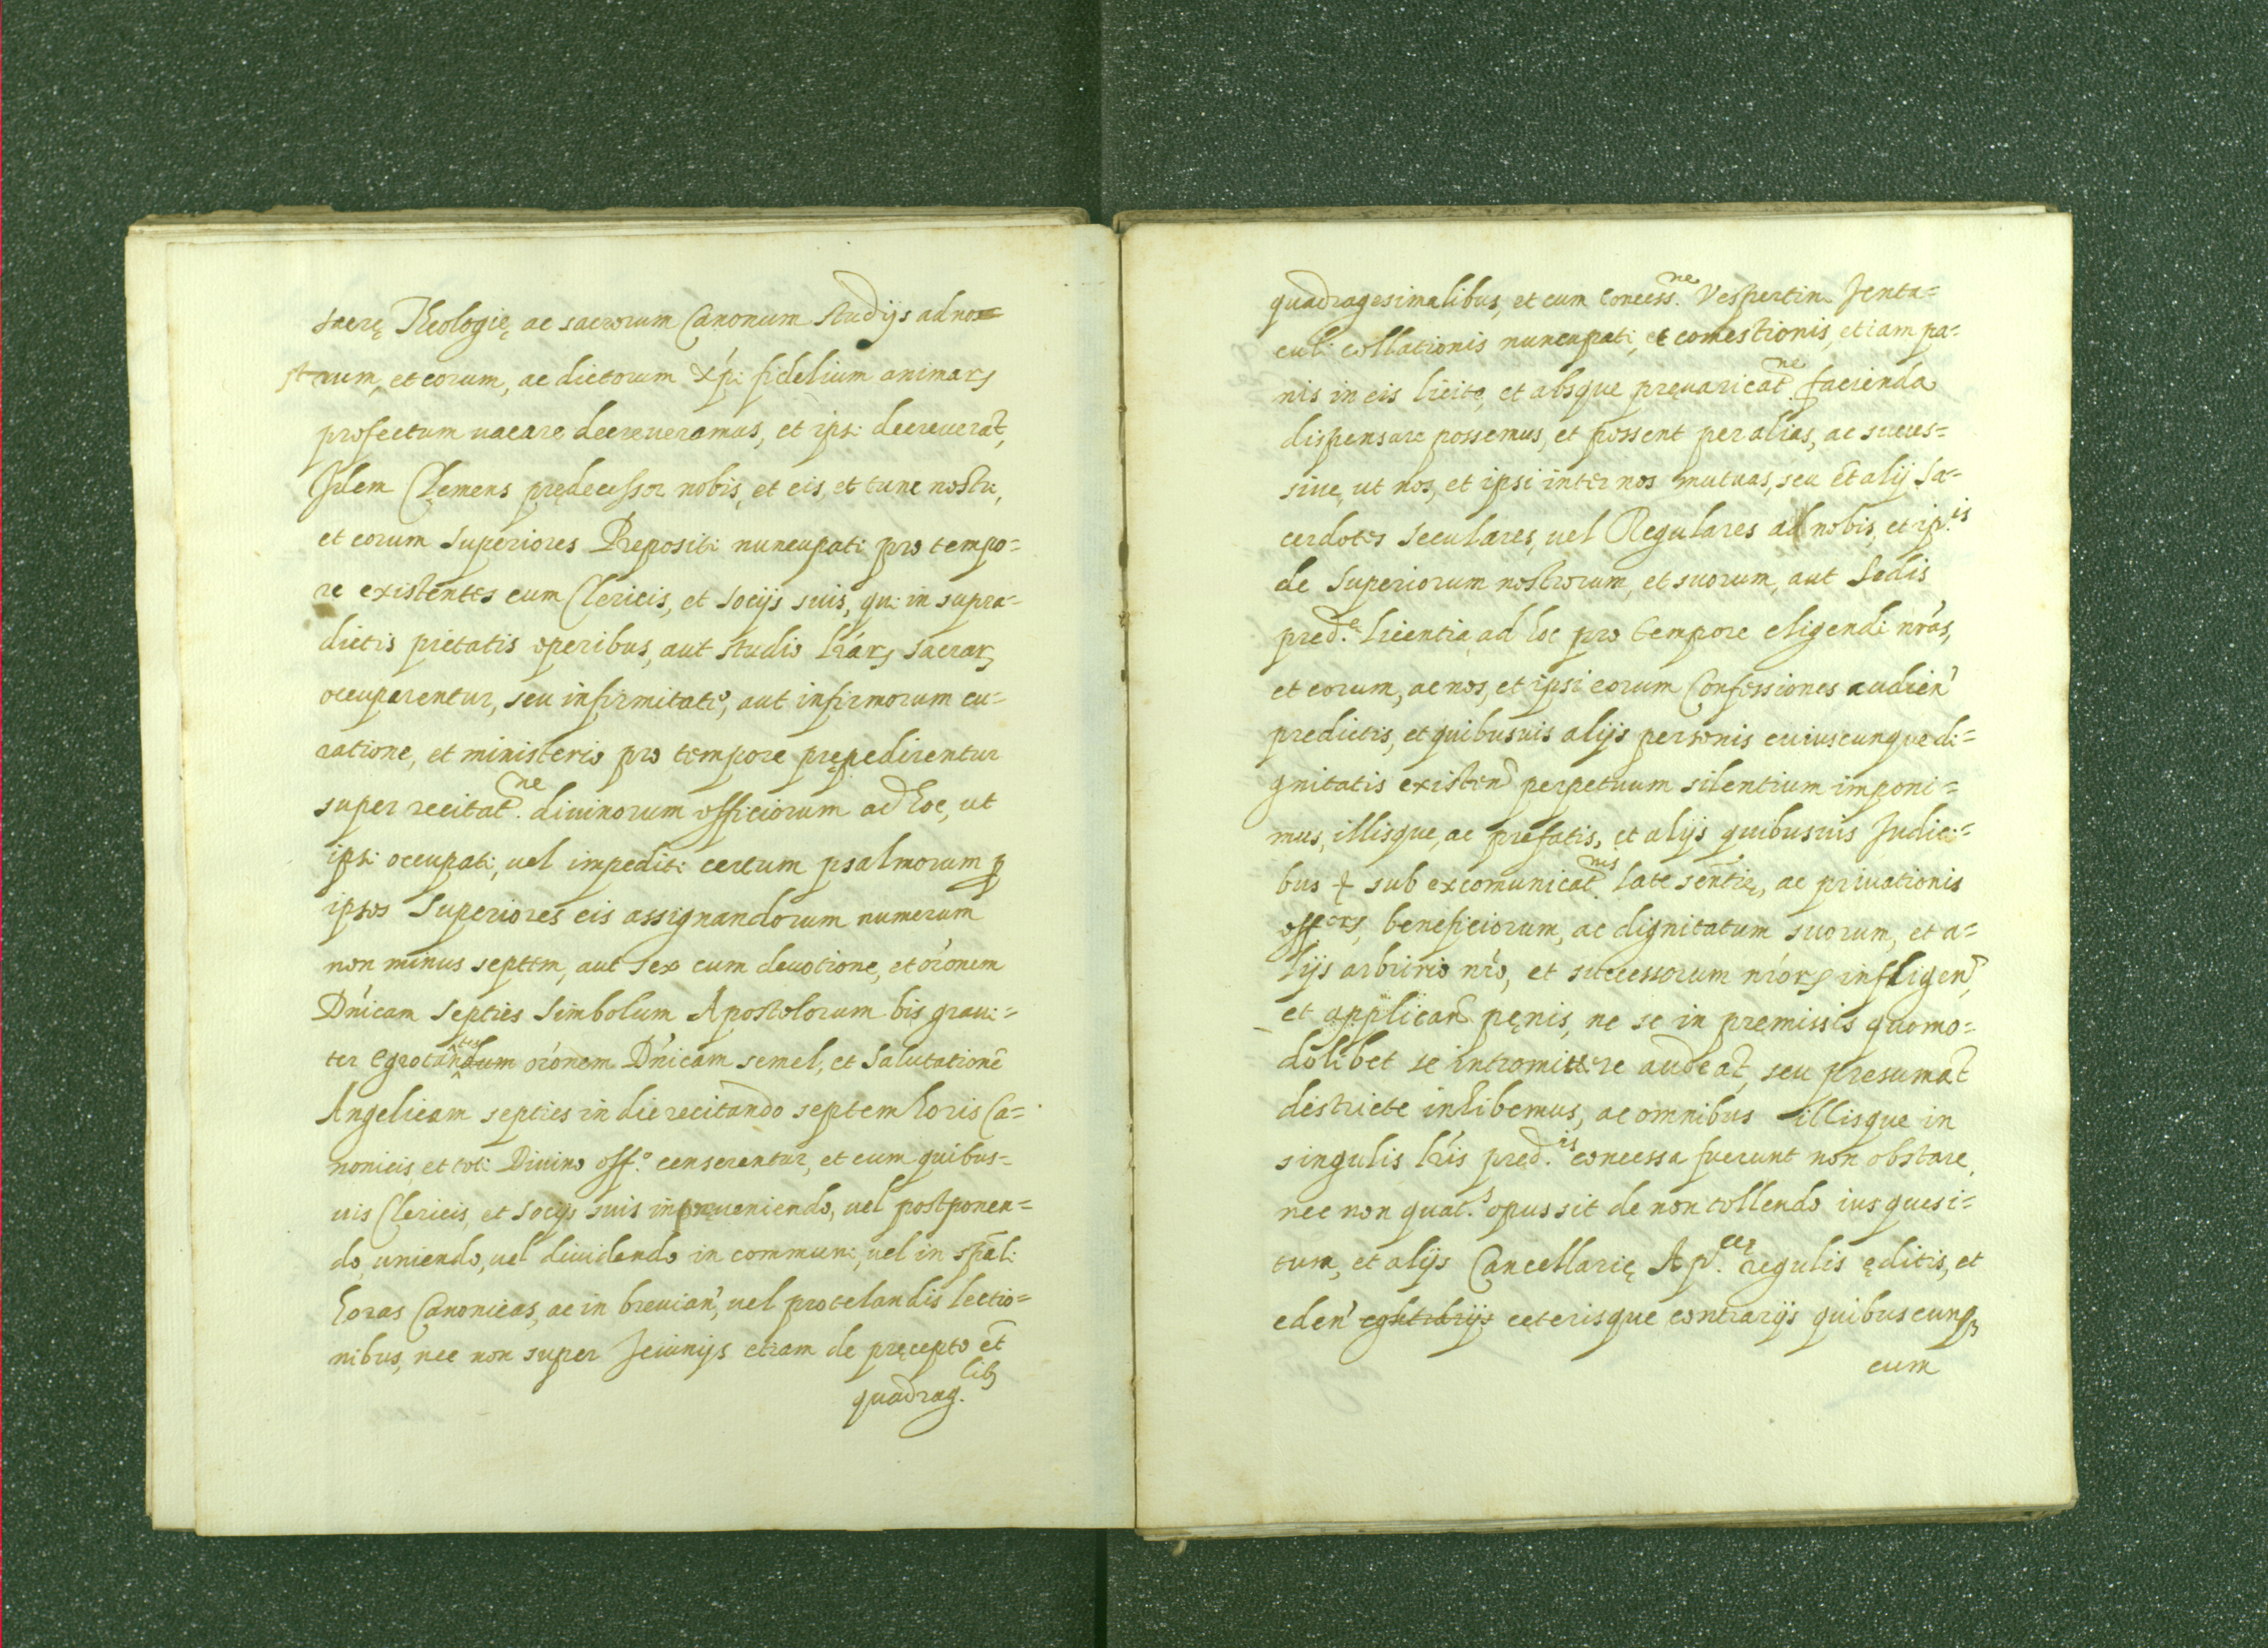 sacrę Theologię, ac sacrorum Canonum studijs ad no=
strum, et eorum, ac dictorum Xp̃i fidelium animarꝝ
profectum uacare decreueramus, et ipsi decreuerāt,
Idem Clemens prędecessor nobis, et eis, et tunc nostri,
et eorum Superiores Prepositi nuncupati pro tempo=
re existentes cum Clericis, et Socijs suis, qui in supra=
dictis pietatis operibus, aut studio lr̃arꝝ sacrarꝝ
occuparentur, seu infirmitate, aut infirmorum cu=
ratione, et ministerio pro tempore prępedirentur
super recitat.ne diuinorum officiorum ad hoc, ut
ipsi occupati, uel impediti certum psalmorum ꝑ
ipsos Superiores eis assignandorum numerum
non minus septem, aut sex cum deuotione, et or̃onem
Dñicam septies Simbolum Apostolorum bis graui=
ter egrotandum tes or̃onem Dñicam semel, et Salutationē
Angelicam septies in die recitando septem horis Ca=
nonicis, et toti Diuino off.o censerentur, et cum quibus=
uis Clericis, et Socijs suis in pręueniendo, uel postponen=
do, uniendo, uel diuidendo in communi, uel in sp̃ali
horas Canonicas, ac in breuian̄, uel protelandis lectio=
nibus, nec non super Jeiunijs etiam de pręcepto et̄
quadrag.libꝫ
quadragesimalibus, et cum concess.ne Vespertin Jenta=
culi collationis nuncupati, et comestionis, etiam pa=
nis in eis licite, et absque preuaricat.ne facienda
dispensare possemus, et possent per alias, ac succes=
siue, ut nos, et ipsi inter nos mutuas, seu et alij Sa=
cerdotes seculares, uel Regulares ad nobis, et ip.is
de Superiorum nostrorum, et suorum, aut Sedis
pred.e licentia, ad hoc pro tempore eligendi nr̃as,
et eorum, ac nos, et ipsi eorum Confessiones audien̄
predictis, et quibusuis alijs personis cuiuscunque di=
gnitatis existen̄ perpetuum silentium imponi=
mus, illisque, ac prefatis, et alijs quibusuis Judici=
bus sub excomunicat.nis late sentię, ac priuationis
off.orꝝ, beneficiorum, ac dignitatum suorum, et a=
lijs arbitrio nr̃o, et successorum nr̃orꝝ infligen̄,
et applican̄ pęnis, ne se in premissis quomo=
dolibet se intromittere audeāt, seu presumāt
districte inhibemus, ac omnibus illisque in
singulis lr̃is pred.is concessa fuerunt non obstare,
nec non quat.s opus sit de non tollendo ius quesi=
tum, et alijs Cancellarię Ap.cę regulis ęditis, et
eden̄ contrarijs ceterisque contrarijs quibuscunqꝫ
cum